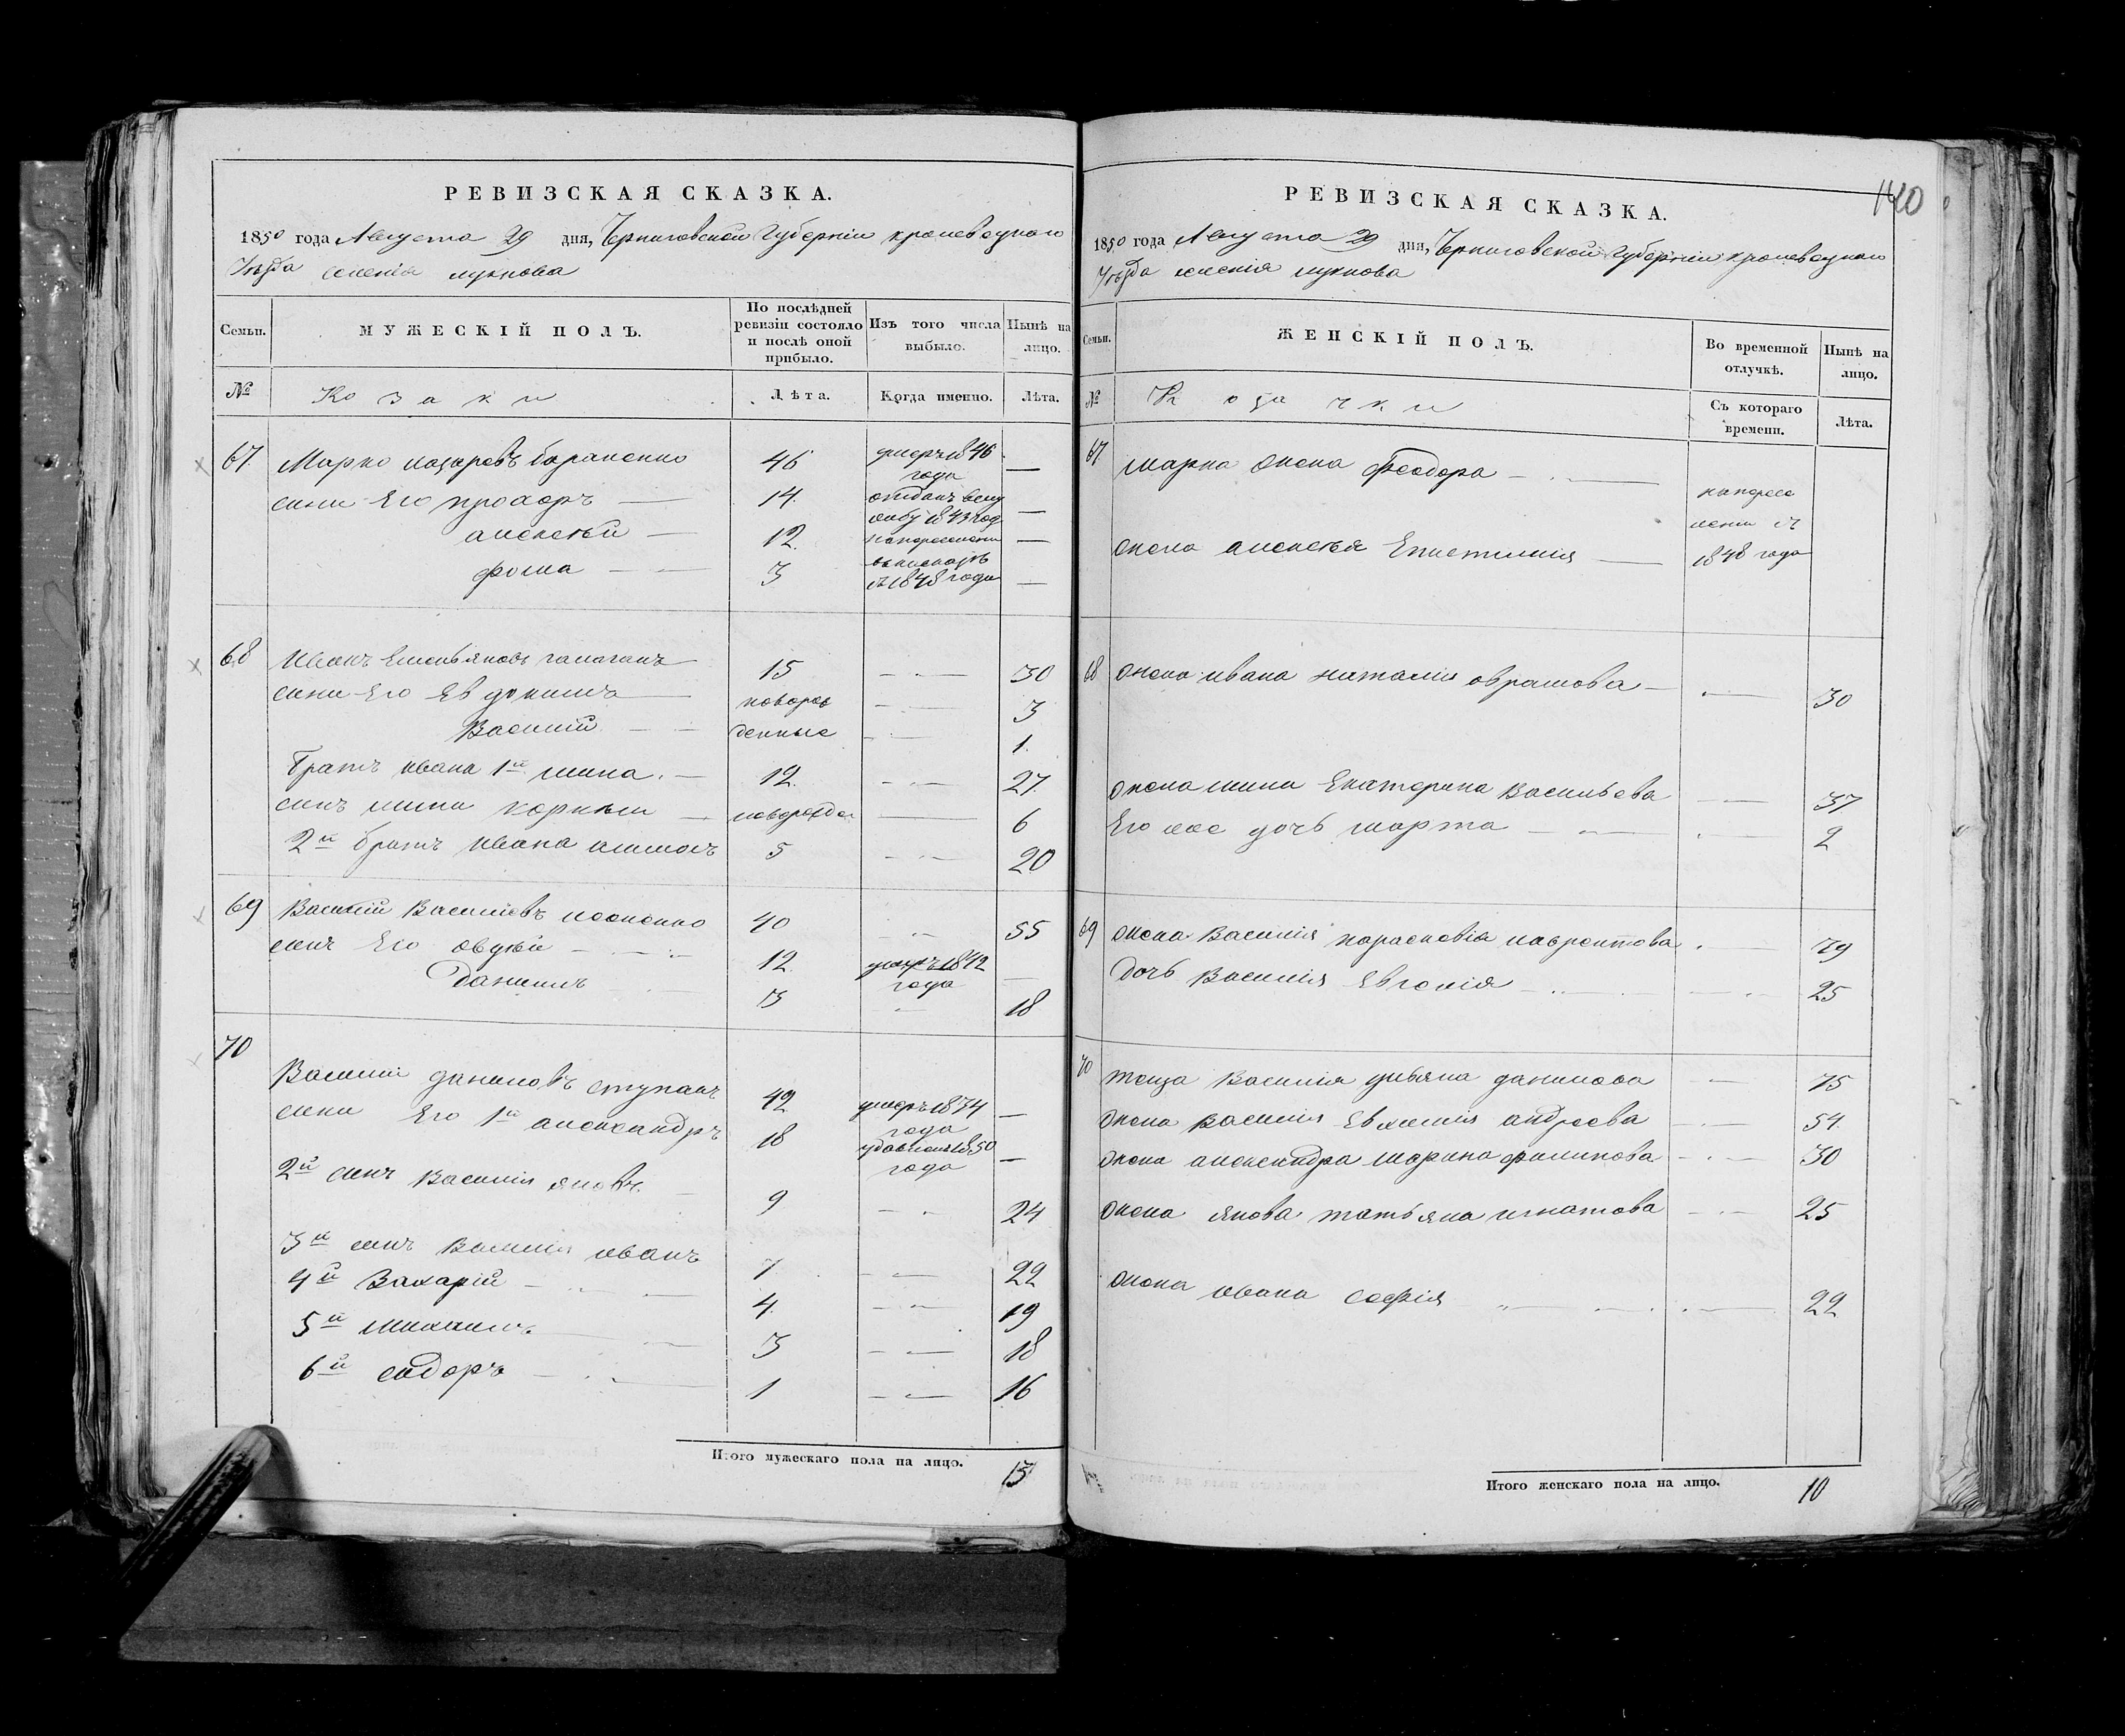 РЕВИЗСКАЯ СКАЗКА.
1850 года Августа 29 дня, Черниговской Губерніи кролевецкаго
Уезда селенія
Семьи.
МУЖЕСКІЙ ПОЛЪ.
По послѣдней ревизіи состояло и послѣ оной прибыло.
Изъ того числа выбыло.
Нынѣ на лицо.
№
Козаки
Лѣта.
Когда именно.
Лѣта.
67. Марко назаровъ 46 умеръ 1846 года —
сини Его прохоръ — 14. отданъ 1843 год —
алексѣй — 12. —
фома — 3 1848 года —
68 Иванъ Емельяновъ галаганъ 15 — 30
сини Его Евдокимъ новорож 3
Василій — денные — 1.
братъ ивана 1й мина. — 12. — 27.
синъ мины корнѣи — новорожде — 6
2й братъ ивана 5 — 20
69 Василій Василіевъ 40 55
синъ Его овдѣй — 12. умеръ 1842 года —
Данилъ 3 18
70
Василій даниловъ ступакъ 42 умеръ 18 4 года —
сини Его 1й александръ 18 1850 года —
2й синъ Василія яковъ. 9 — 24
3й синъ Василія иванъ 7. — 22
4й Захарій — 4. — 19
5й михаилъ 3 — 18
6й сидоръ — 1 — 16
Итого мужескаго пола на лицо. 13
140
РЕВИЗСКАЯ СКАЗКА.
1850 года Августа 29 дня, Черниговской Губерніи кролевецкаго
Уезда селенія
Семьи.
ЖЕНСКІЙ ПОЛЪ.
Во временной отлучкѣ.
Нынѣ на лицо.
№
Козачки
Съ котораго времени.
Лѣта.
67. марка жена феодора —
жена алексѣя Епистимия — 1848 года
68 жена ивана наталия аврамова — 30
жена мины Екатерина Васильева — 37.
Его же дочь марта — 2
69 жена Василія параскевія лаврентова. 49
дочь Василія Евгенія — 25
70 теща Василія уляна данилова — 75
жена Василія Евхимия андреева — 51.
жена александра марина филипова — 30
жена якова татьяна игнатова — 25
жена ивана софія — 22
Итого женскаго пола на лицо. 10